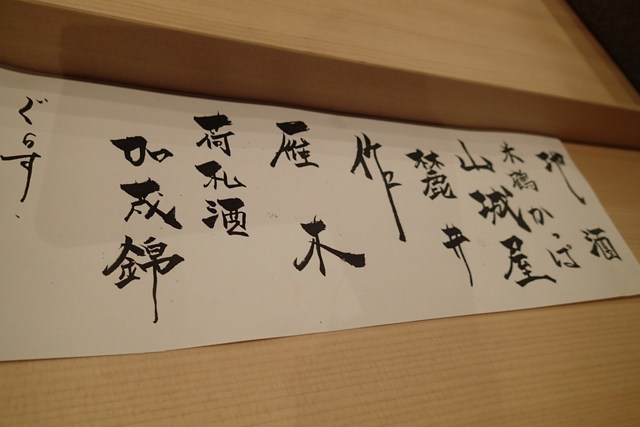 地酒
米鶴かっぱ
山城屋
麓井
作
雁木
荷札酒
加茂錦
ぐらす、